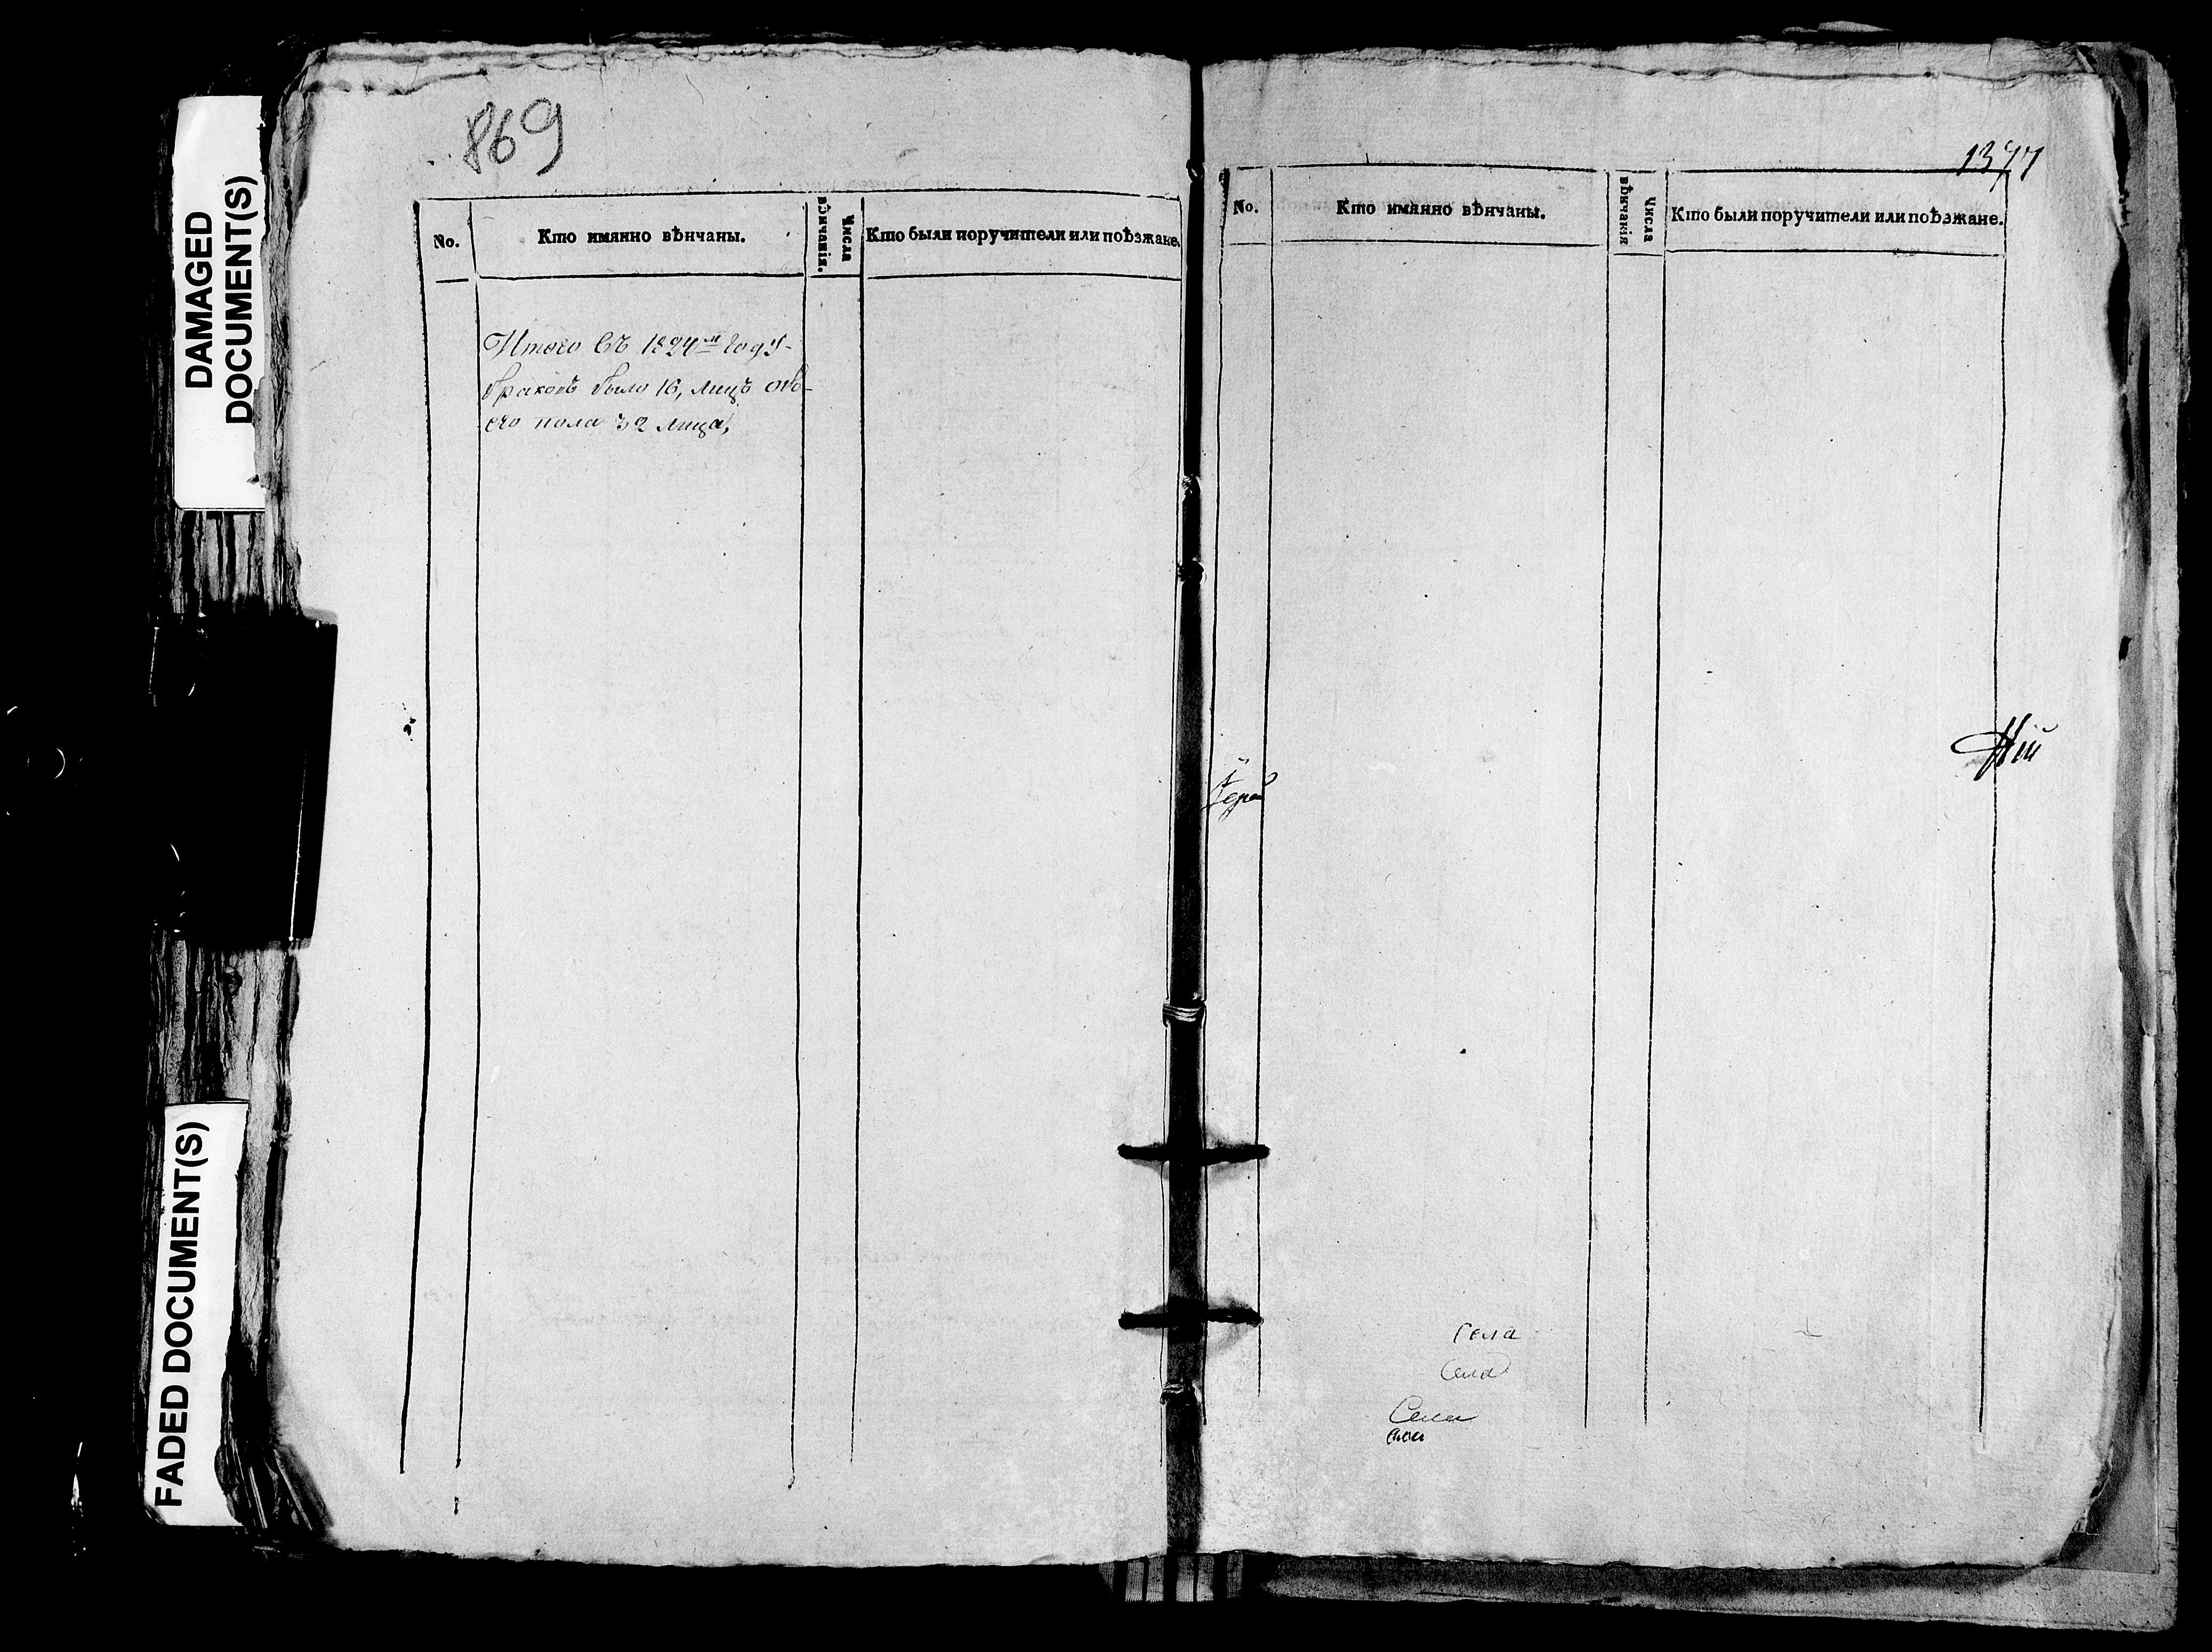 DAMAGED
DOCUMENT(S)
FADED DOCUMENT(S)
869
No.
Кто имянно вѣнчаны.
Числа
вѣнчанія.
Кто были поручители или поѣзжане.
Итого въ 1824м году
браковъ было 16, лицъ обо-
его пола 32 лица,
1377
No.
Кто имянно вѣнчаны.
Числа
вѣнчанія
Кто были поручители или поѣзжане.
села
села
Села